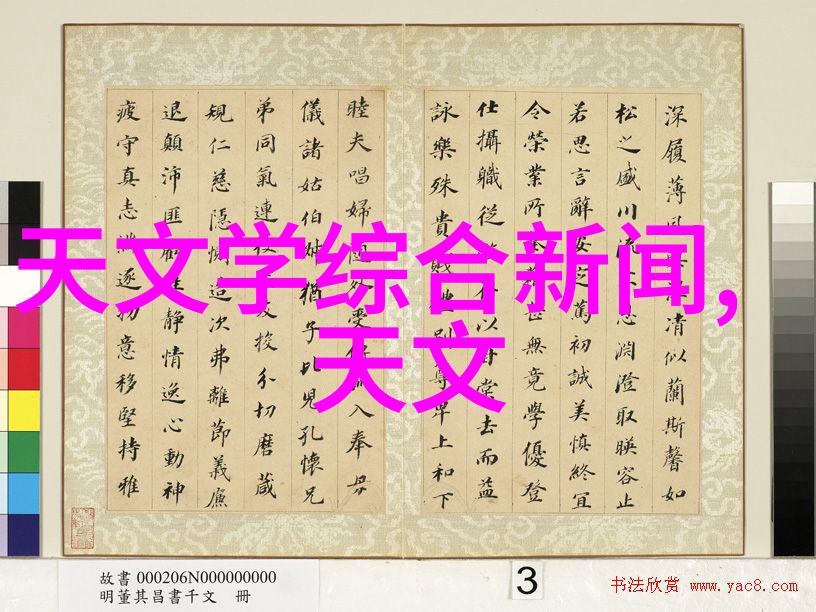 天文学综合新闻,
天文
深履薄清似蘭斯馨如
松之盛川流息淵澄取暎容止
若思言辭安定篤初誠美慎終宜
令榮業所甚無竟學優登
仕攝職從以甘棠去而益
詠樂殊貴賤別尊卑上和下
睦夫唱婦外受入奉母
儀諸姑伯猶子比兒孔懷兄
弟同氣連友投分切磨葴
規仁慈隱惻造次弗離節義廉
退顛沛匪靜情逸心動神
疲守真志逐物意移堅持雅
故書 000206N000000000
明董其昌書千文 冊
3
书法欣赏 www.yac8.com